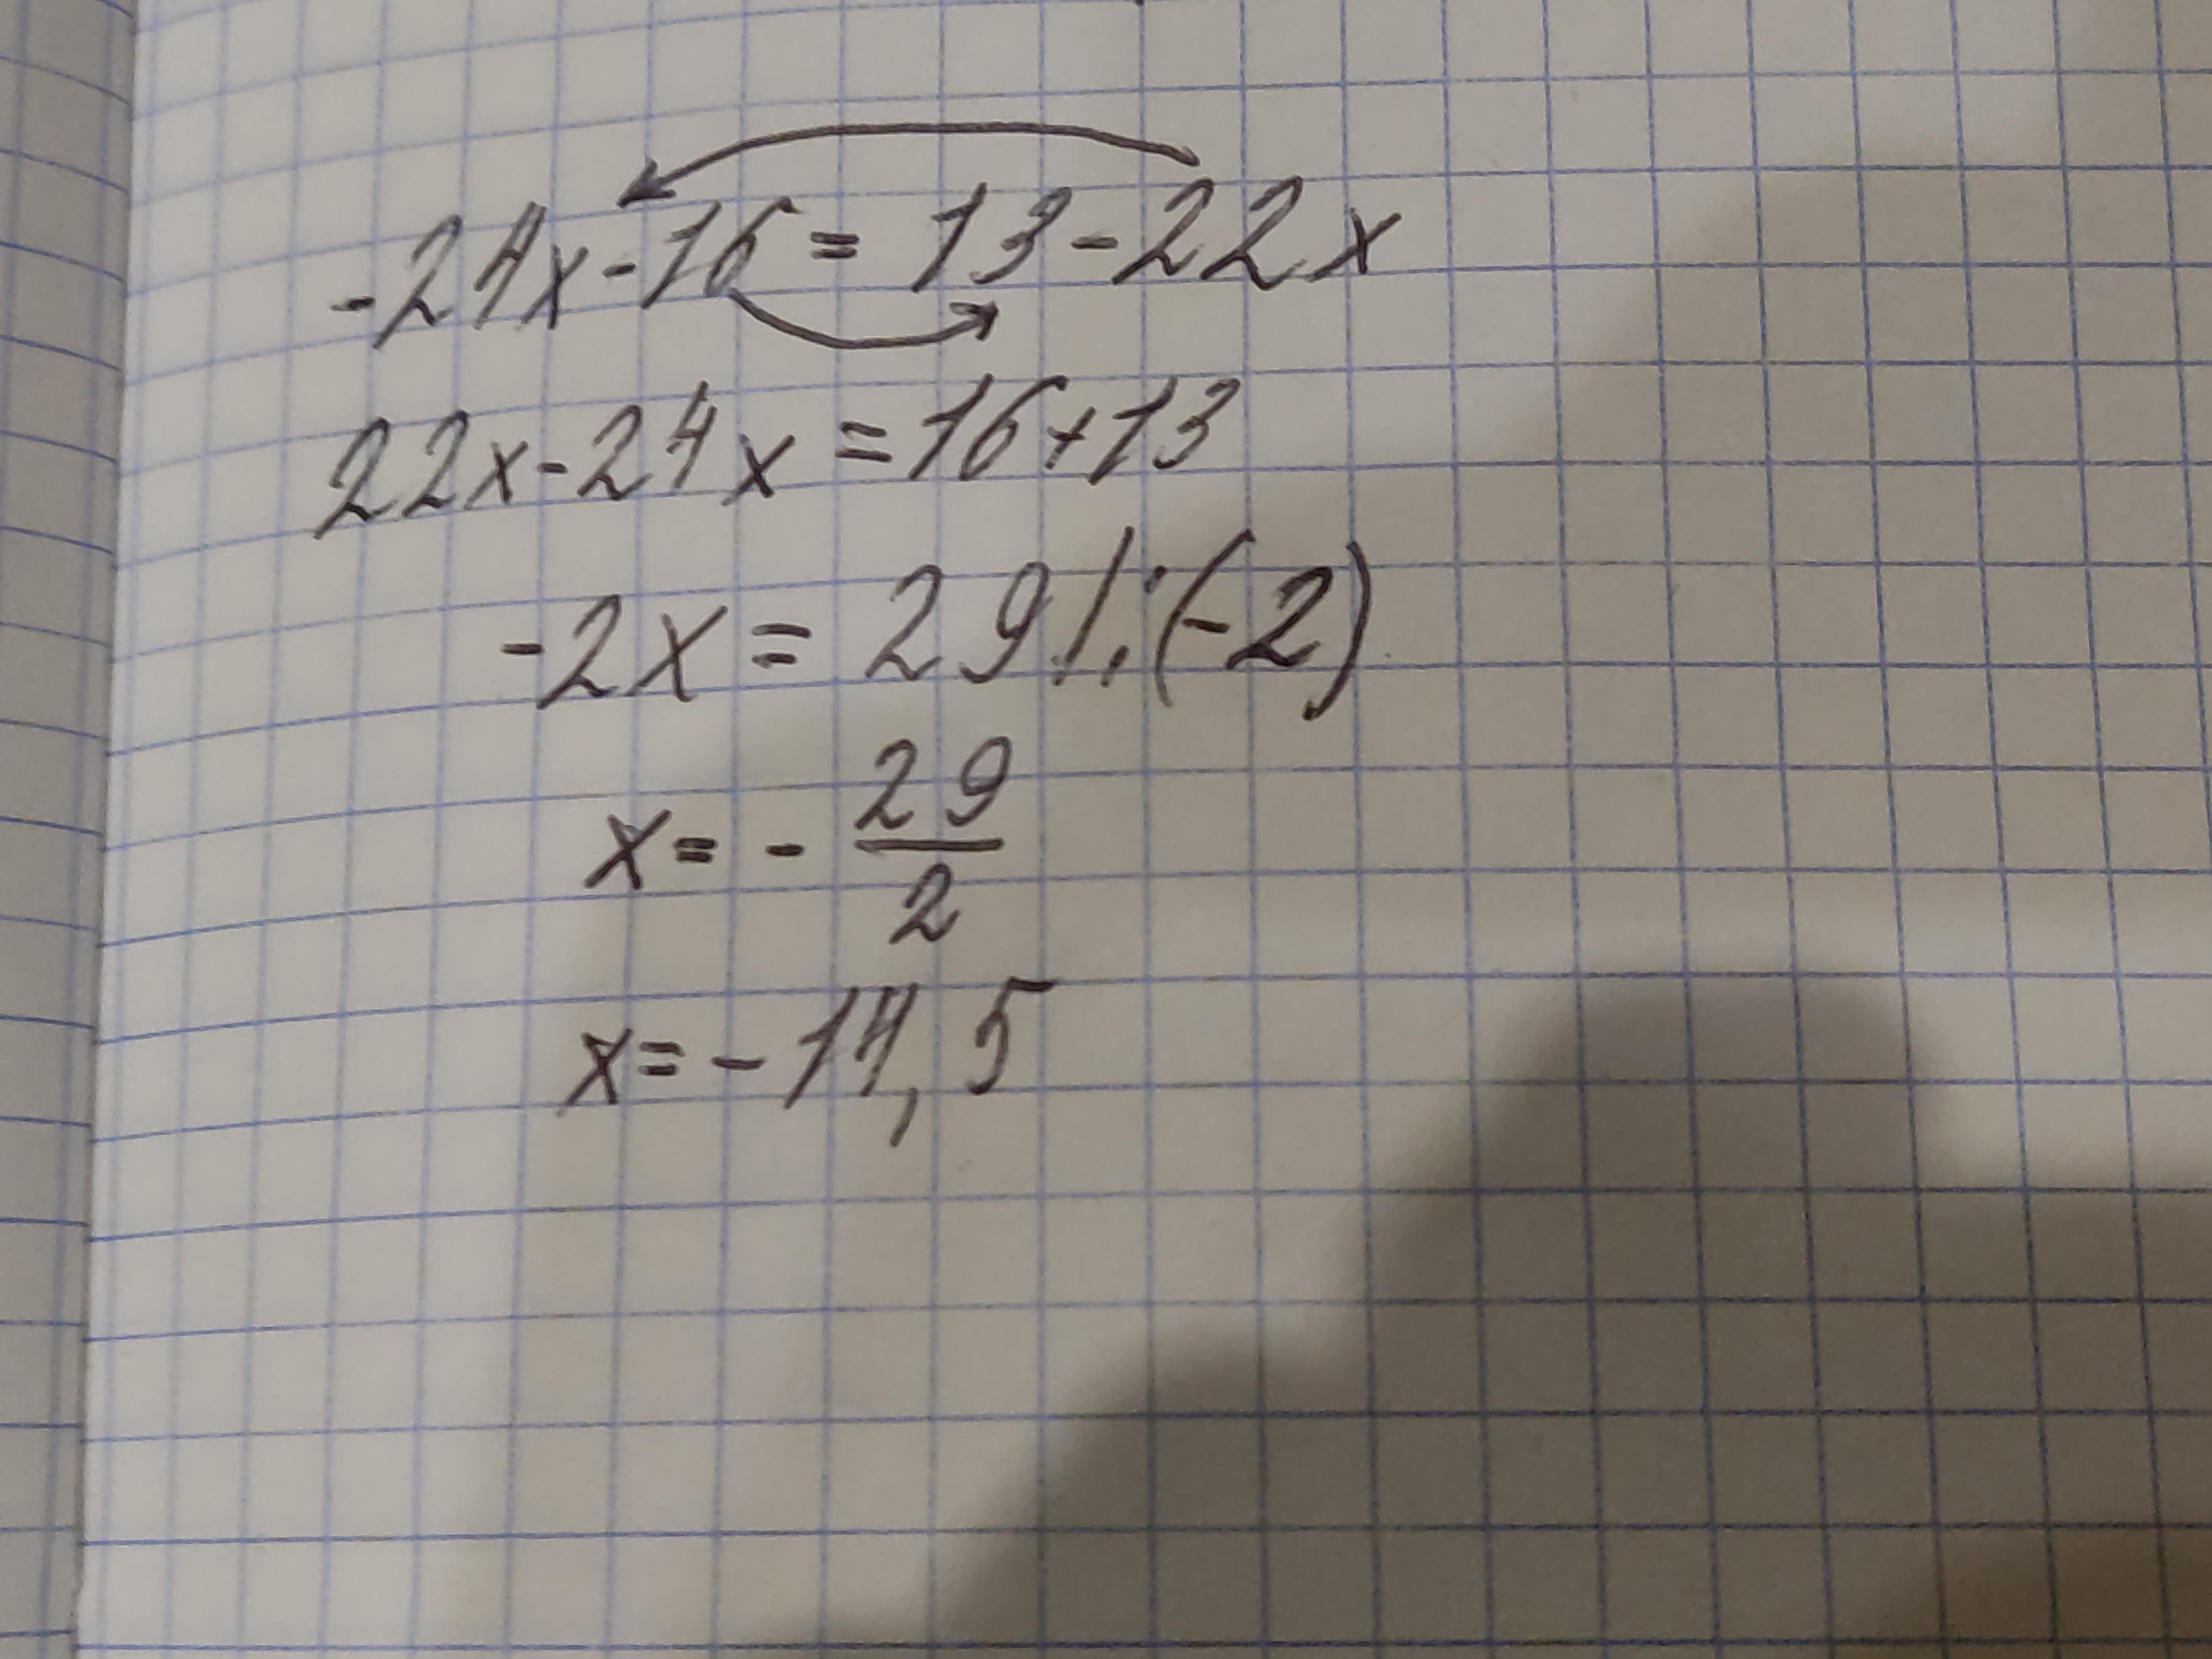 -24x-16=13-22x
22x-24x=16+13
-2x=29|:(-2)
x=-29/2
x=-14,5